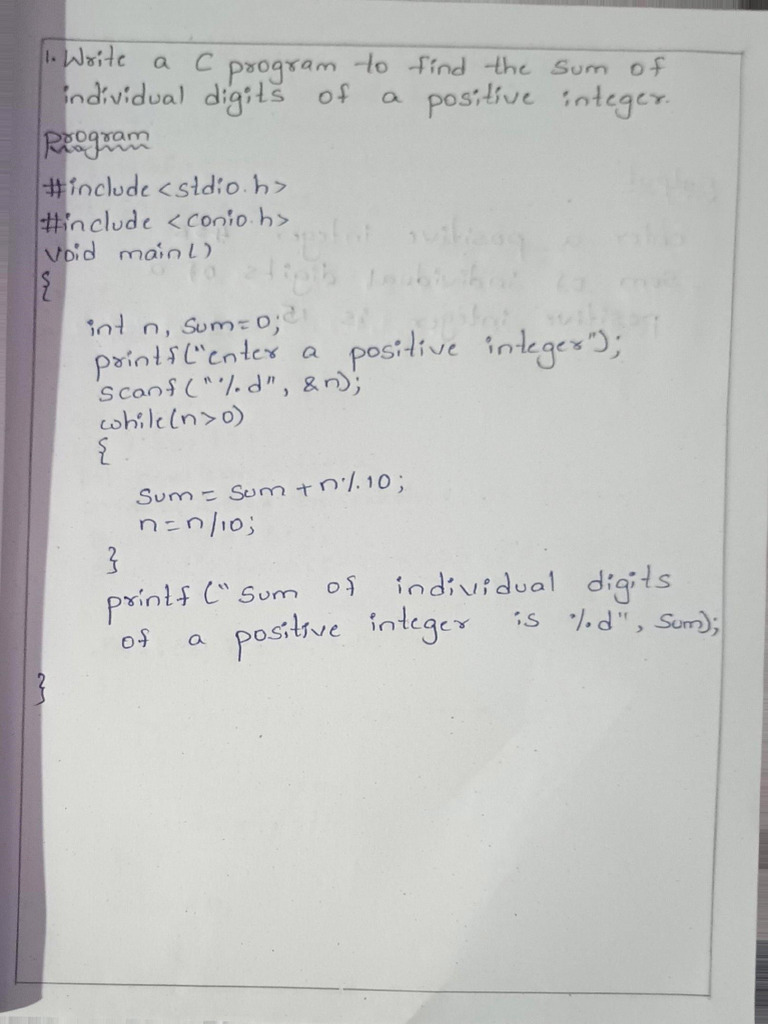 1. Write a C program to find the sum of
individual digits of a positive integer.
Program
#include <stdio.h>
#include <conio.h>
void main()
{
int n, sum=0;
printf("enter a positive integer");
scanf("%d", &n);
while(n>0)
{
sum = sum + n%10;
n=n/10;
}
printf("sum of individual digits
of a positive integer is %d", sum);
}